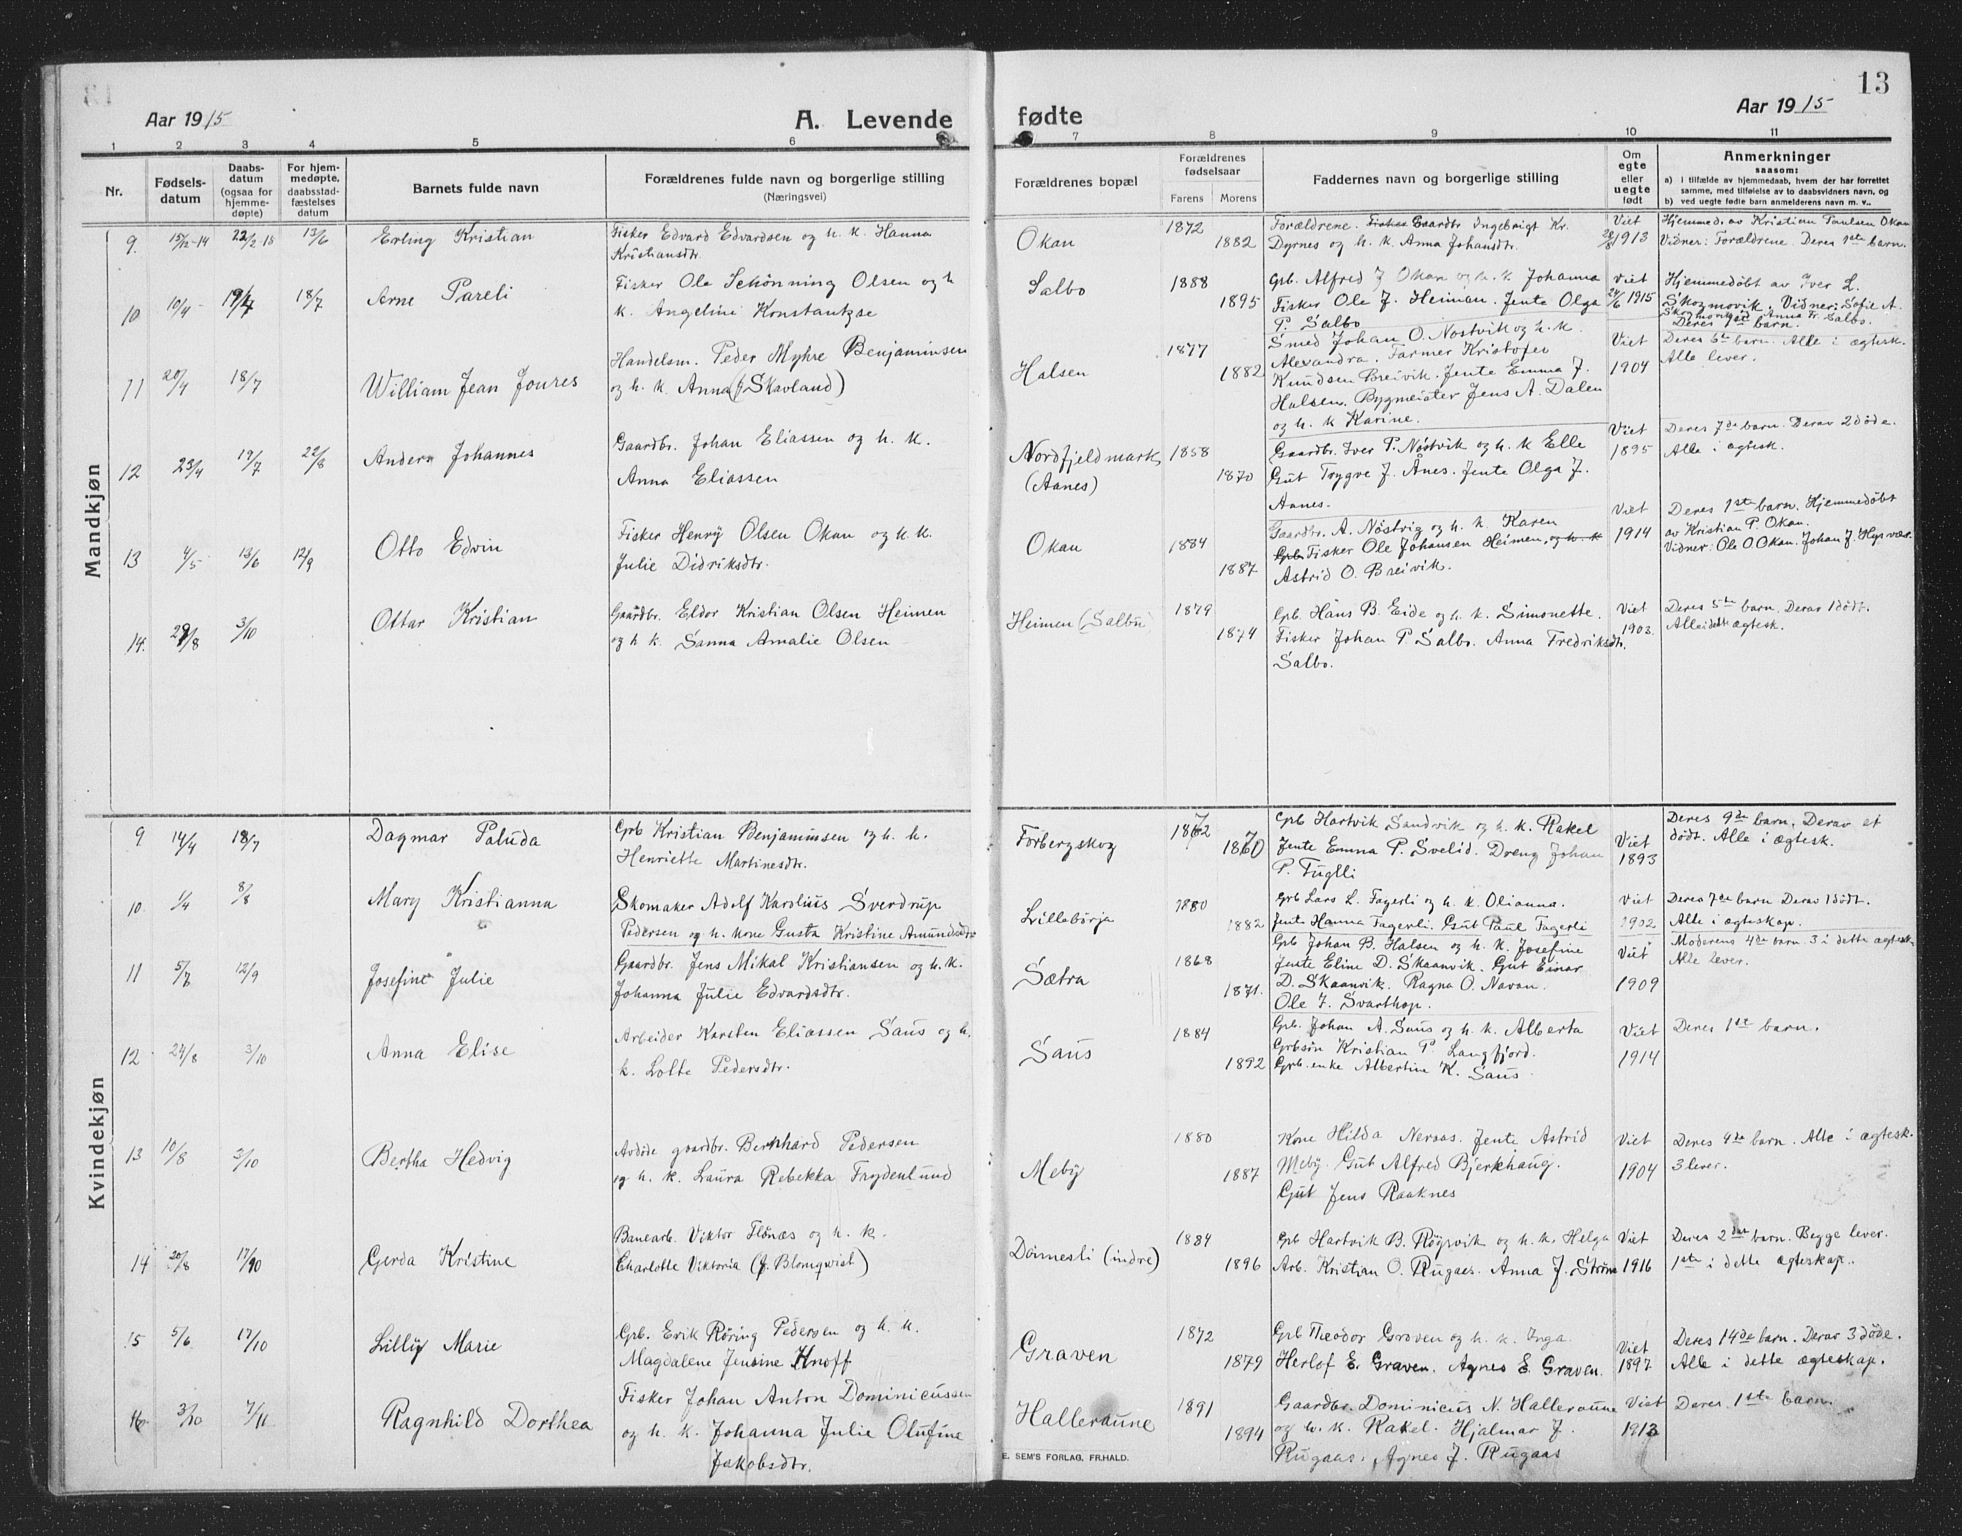 13
Aar 1915
A. Levende
fødte
Aar 1915
1 2 3 4 5 6 7 8 9 10 11
Nr.
Fødsels-
datum
Daabs-
datum
(ogsaa for
hjemme-
døpte)
For hjem-
medøpte,
daabsstad-
fæstelses
datum
Barnets fulde navn
Forældrenes fulde navn og borgerlige stilling
(Næringsvei)
Forældrenes bopæl
Forældrenes
fødselsaar
Farens Morens
Faddernes navn og borgerlige stilling
Om
egte
eller
uegte
født
Anmerkninger
saasom:
a) i tilfælde av hjemmedaab, hvem der har forrettet
samme, med tilføielse av to daabsvidners navn, og
b) ved uegte fødte barn anmelderens navn m. v..
Mandkjøn
9. 15/12-14 22/2-15 13/6 Erling Kristian
Fisker Edvard Edvardsen og h. k. Hanna
Kristiansdtr.
Okan 1872 1882
Forældrene. Gaardbr Ingebrigt Kr.
Dyrnes og h. k. Anna Johansdtr.
Viet
1913
Hjemmed. av Kristian Paulsen Okan
Vidner: Forældrene. Deres 1ste barn.
10 10/4 19/4 18/7 Arne Pareli
Fisker Ole Schönning Olsen og h
k. Angeline Konstantse
Salbo 1888 1895
Grb. Alfred J Okan og h. k Johanna
Fisker Ole J. Heiman. Jente Olga
P. Salbo
Viet
24/6 1915
Hjemmedøbt av Iver L.
Skogmovik. Vidner: Sofie A.
Skogmovik og Anna Fr. Salbo.
Deres 1st barn.
11 20/4 18/7 William Jean Joures
Handelsm. Peder Myhre Benjaminsen
og h. k. Anna (f Skavland)
Halsen 1877 1882
Smed Johan O. Nostvik og h. k.
Alexandra. Farmer Kristofer
Knudsen Breivik. Jente Emma J.
Halsen. Bygmeister Jens A. Dalen
og h. k Karine.
Viet
1904
Deres 6te barn. Alle i ægtesk.
Alle lever.
12 23/4 19/7 22/8 Anders Johannes
Gaardbr. Johan Eliassen og h. k.
Anna Eliassen
Nordfjeldmark
(Aanes)
1858 1870
Gaardbr. Iver P. Nøstvik og h. k Elle
Gut Trygve J. Ånes. Jente Olga J.
Aanes.
Viet
1895
Deres 7de barn. Derav 2 døde.
Alle i ægtesk.
13 4/5 13/6 12/9 Otto Edvin
Fisker Henry Olsen Okan og h. k.
Julie Didriksdtr.
Okan 1884 1887
Gaardbr. A. Nöstvig og h. k. Karen
Grb. Fisker Ole Johansen Heimen, og h. k
Astrid O. Breivik.
Viet
1914
Deres 1ste barn. Hjemmedöbt
av Kristian P. Okan.
Vidner: Ole O Okan. Johan J. Hysvær.
14. 29/8 3/10 Ottar Kristian
Gaardbr. Eldor Kristian Olsen Heimen
og h k. Sanna Amalie Olsen
Heimen (Salbu) 1879 1874
Grb. Hans B. Eide og h. k. Simonette.
Fisker Johan P. Salbo. Anna Fredriksdtr.
Salbo.
Viet
1903.
Deres 5te barn. Derav 1 dødt.
Alle i dette ægtesk.
Kvindekjøn
9 14/4 18/7 Dagmar Paluda
Grb Kristian Benjaminsen og h. k.
Henriette Martinesdtr.
Forbergskog
Grb Hartvik Sandvik og h. k. Rakel
Jente Emma P. Svelid. Dreng Johan
P. Fuglli
Viet
1893
Deres 9de barn. Derav et
dødt. Alle i ægtesk.
10 1/4 8/8 Mary Kristianna
Skomaker Adolf Karolius Sverdrup
Pedersen og h. kone Gusta Kristine Amundsdtr
Lillebörja 1880 1882
Grb Lars L. Fagerli og h. k. Olianna.
Jente Hanna Fagerli. Gut Paul Fagerli
Viet
1902
Deres 7de barn Derav 1 dödt.
Alle i ægteskap.
11 5/7 12/9 Josefine Julie
Gaardbr. Jens Mikal Kristiansen og h. k.
Johanna Julie Edvardsdtr.
Sætra 1868 1871.
Grb Johan B. Halsen og h. k. Josefine
Jente Eline D. Skaanvik. Gut Einar
D. Skaanvik. Ragna O. Navan.
Ole J. Svarthop.
Viet
1909
Moderens 4de barn. 3 i dette ægtesk.
Alle lever.
12 24/8 3/10 Anna Elise
Arbeider Karsten Eliassen Saus og h.
k. Lotte Pedersdtr.
Saus 1884 1892
Grb. Johan A. Saus og h. k. Alberta
Grbsøn Kristian P. Langfjord.
Grb. enke Albertine K. Saus.
Viet
1914
Deres 1ste barn.
13 10/8 3/10 Bertha Hedvig
gaardbr. Bernhard Pedersen
og h. k. Laura Rebekka Trydenlund
Meby 1880 1887
Kone Hilda Neraas. Jente Astrid
Meby. Gut Alfred Bjerkhaug.
Gut Jens Raaknes
Viet
1904
Deres 4de barn. Alle i ægtesk.
3 lever.
14 20/8 17/10 Gerda Kristine
Banearb. Viktor Flönæs og h. k.
Charlotte Viktoria (f. Blomqvist)
Dönnesli (indre) 1884 1896
Grb Hartvik B. Röysvik og h. k. Helga
Arb. Kristian O. Rugaas. Anna J. Ström
Viet
1916
Deres 2det barn. Begge lever.
1ste i dette ægteskap.
15 5/6 17/10 Lilly Marie
Grb. Erik Röring Pedersen og h. k.
Magdalene Jensine Knoff
Graven 1872 1879
Grb Theodor Graven og h. k. Inga.
Herlof E. Graven. Agnes E. Graven.
Viet
1897
Deres 14de barn. Derav 3 döde.
Alle i dette ægteskap.
16 3/10 7/11 Ragnhild Dorthea
Fisker Johan Anton Dominicussen
og h. k. Johanna Julie Olufine
Jakobsdtr.
Halleraune 1891 1894
Gaardbr. Dominicus N. Halleraune
og h. k. Rakel. Hjalmar J.
Rugaas. Agnes J. Rugaas
Viet
1913
Deres 1ste barn.
E. SEM'S FORLAG, FR.HALD.